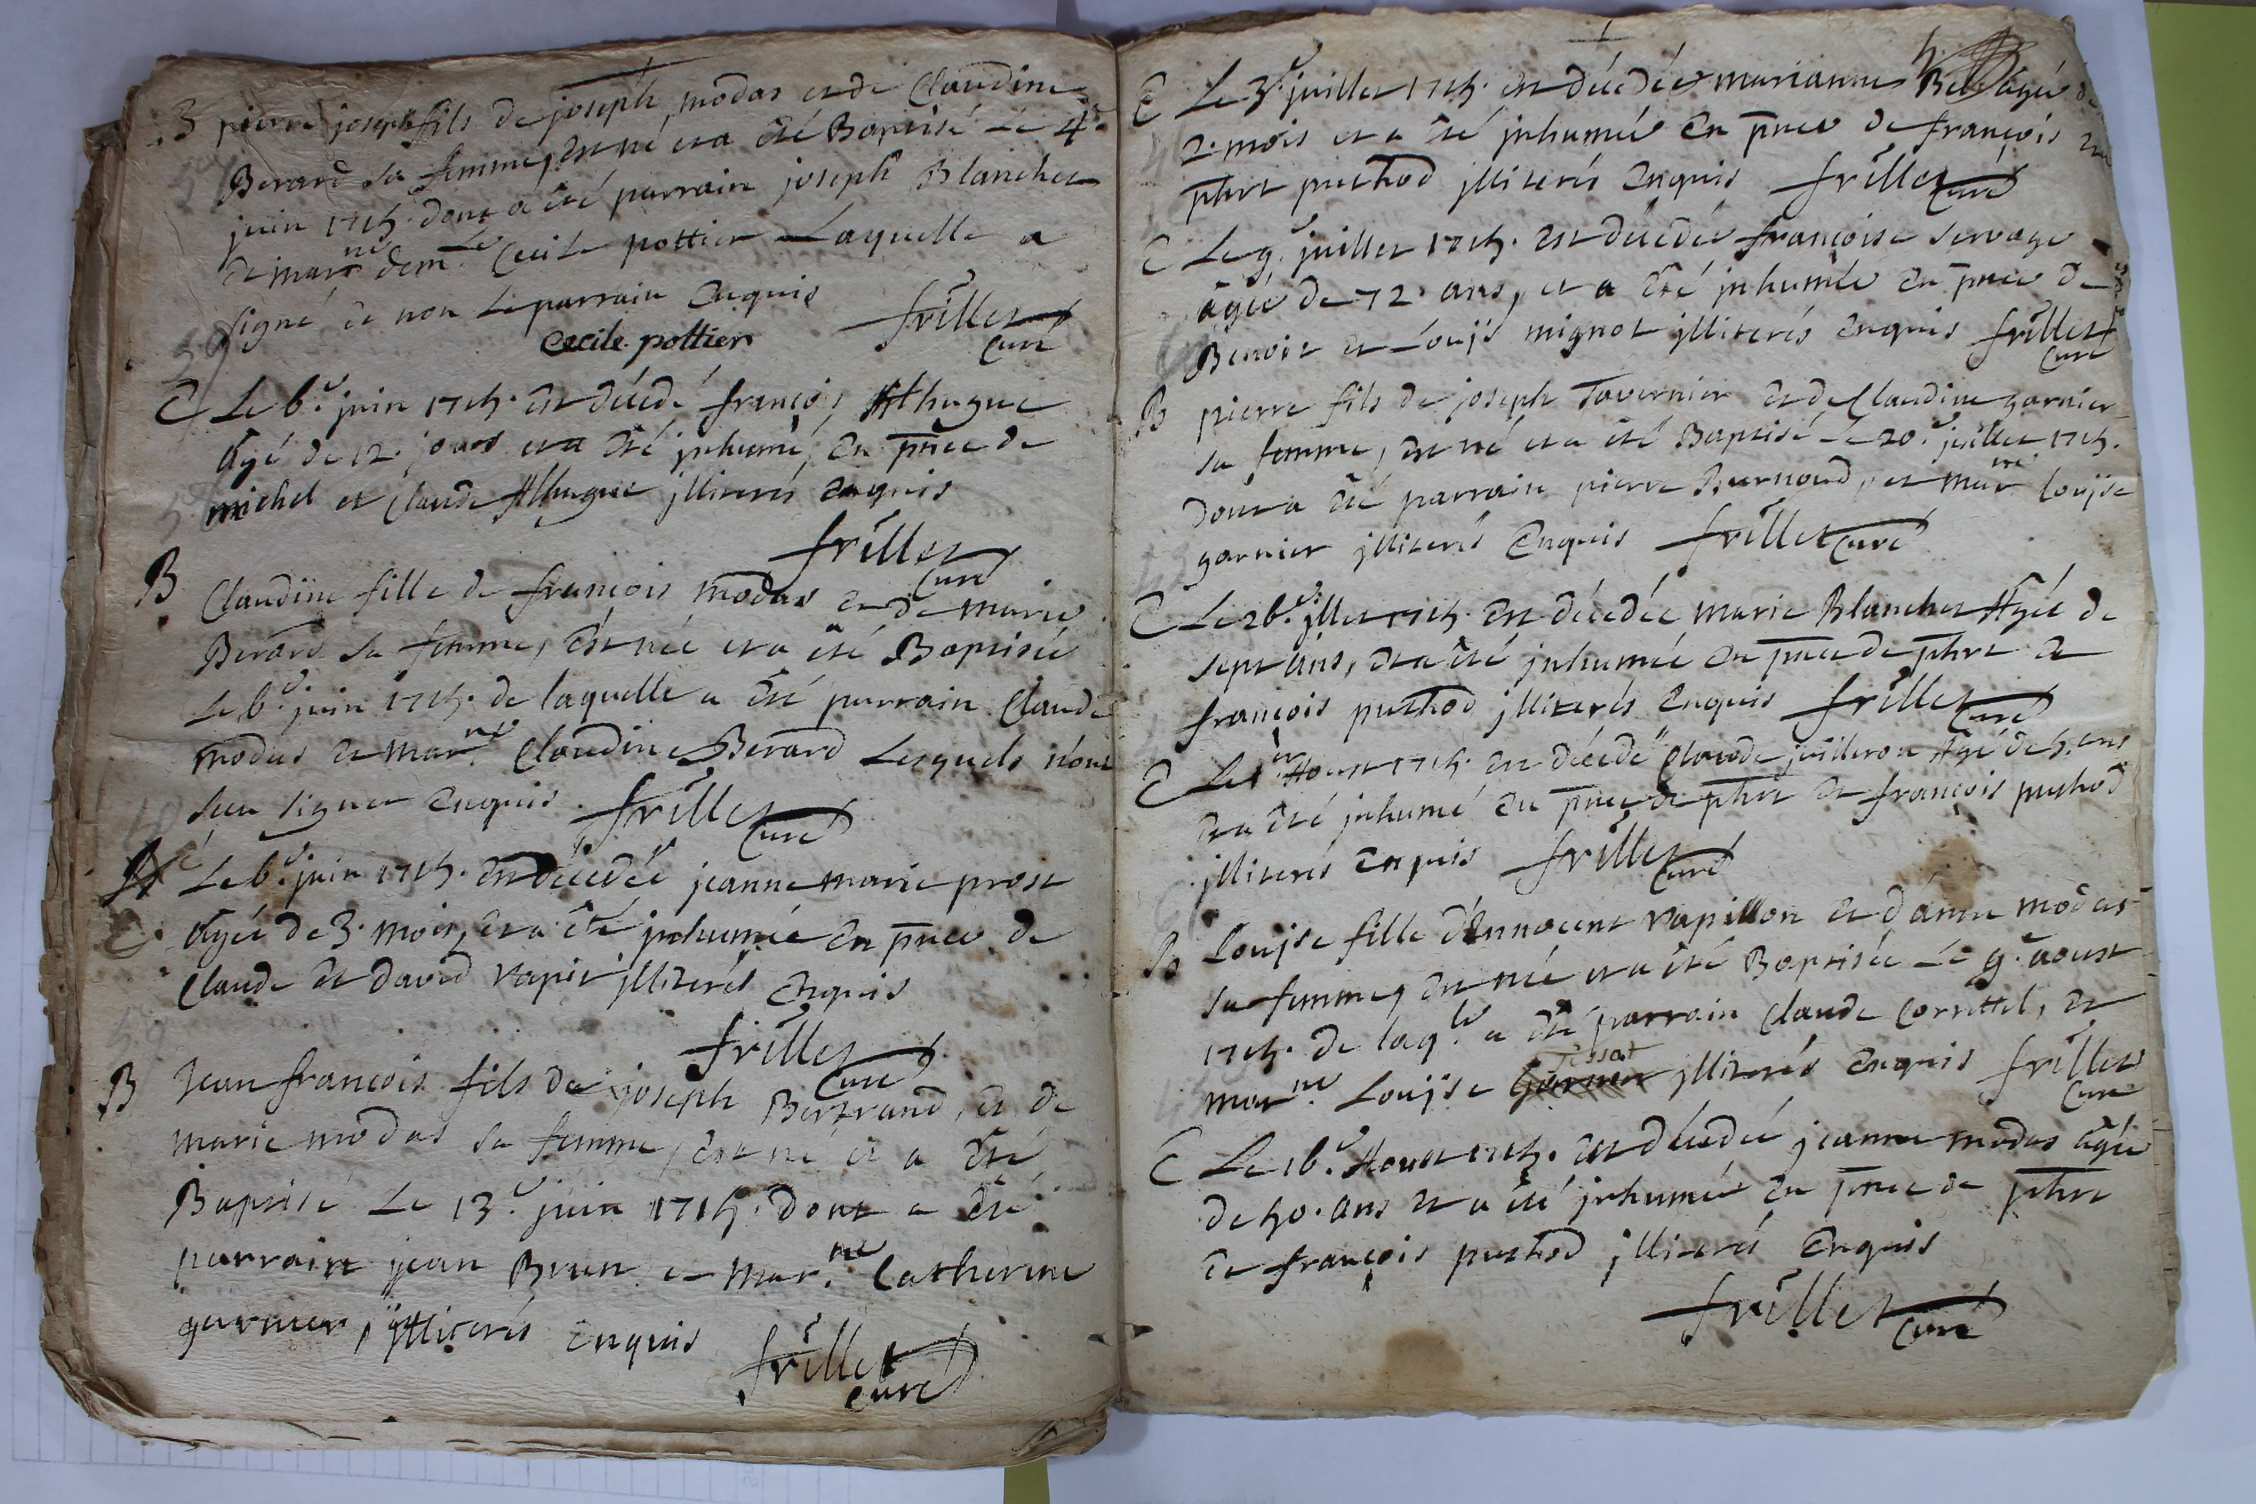 B pierre joseph fils de joseph modas et de Claudine
Berard sa femme, est né et a été Baptisé Le 4e
juin 1715. dont a été parrain joseph Blanchet
et marne demlle Cecile pottier Laquelle a
signé et non Le parrain Enquis
Cecile pottier frillet
Curé
C Le 6e juin 1715. est décédé françois Althugue
Agé de 12. jours et a été jnhumé, En pnce de
michel et Claude Althugue jlliterés Enquis
frillet
Curé
B Claudine fille de françois modas et de marie
Berard sa femme, est née et a été Baptisée
Le 6e juin 1715. de laquelle a été parrain Claude
modas et marne Claudine Berard Lesquels n'ont
sceu signer Enquis frillet
Curé
C Le 6e juin 1715. est décédée jeanne marie prost
Agée de 3. mois, et a été jnhumée En pnce de
Claude et david vapit jlliterés Enquis
frillet
Curé
B Jean françois fils de joseph Bertrand, et de
marie modas sa femme, est né et a été
Baptisé Le 13e juin 1715. dont a été
parrain jean Brun et marne Catherine
garnier, jlliterés Enquis
frillet
Curé
5.
C Le 3e juillet 1715. est décédée marianne Bel agée de
2. mois et a été jnhumée En pnce de françois et
phrt puthod jlliterés Enquis frillet
Curé
C Le 9e juillet 1715. est décédée françoise servage
agée de 72. ans, et a été jnhumée En pnce de
Benoit et Loujs mignot jlliterés Enquis frillet
Curé
B pierre fils de joseph Tavernier et de Claudine garnier
sa femme, est né et a été Baptisé Le 20e juillet 1715.
dont a été parrain pierre Burnoud, et marne Loujse
garnier jlliterés Enquis frillet
Curé
C Le 26e jllet 1715. est décédée marie Blanchet Agée de
sept ans, et a été jnhumée En pnce de phrt et
françois puthod jlliterés Enquis frillet
Curé
C Le 1er Aoust 1715. est décédé Claude juilleron Agé de 5. ans
et a été jnhumé En pnce de phrt et françois puthod
jlliterés Enquis frillet
Curé
B Loujse fille d'Ennocent vapillon et d'anne modas
sa femme, est née et a été Baptisée Le 9e aoust
1715. de laqle a été parrain Claude Correttel, et
marne Loujse Tissot jlliterés Enquis frillet
Curé
C Le 16e Aoust 1715. est décédée jeanne modas agée
de 50. ans et a été jnhumée En pnce de phrt
et françois puthod jlliterés Enquis
frillet
Curé